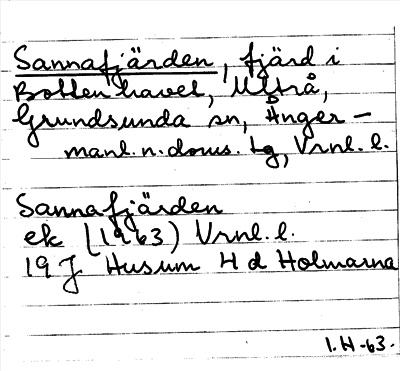 Sannafjärden, fjärd i
Bottenhavet, Ultrå,
Grundsunda sn, Ånger-
manl. n. doms. tg, Vrnl. l.
Sannafjärden
ek (1963) Vrnl. l.
19 J Husum H d Holmarna
I.H-63.